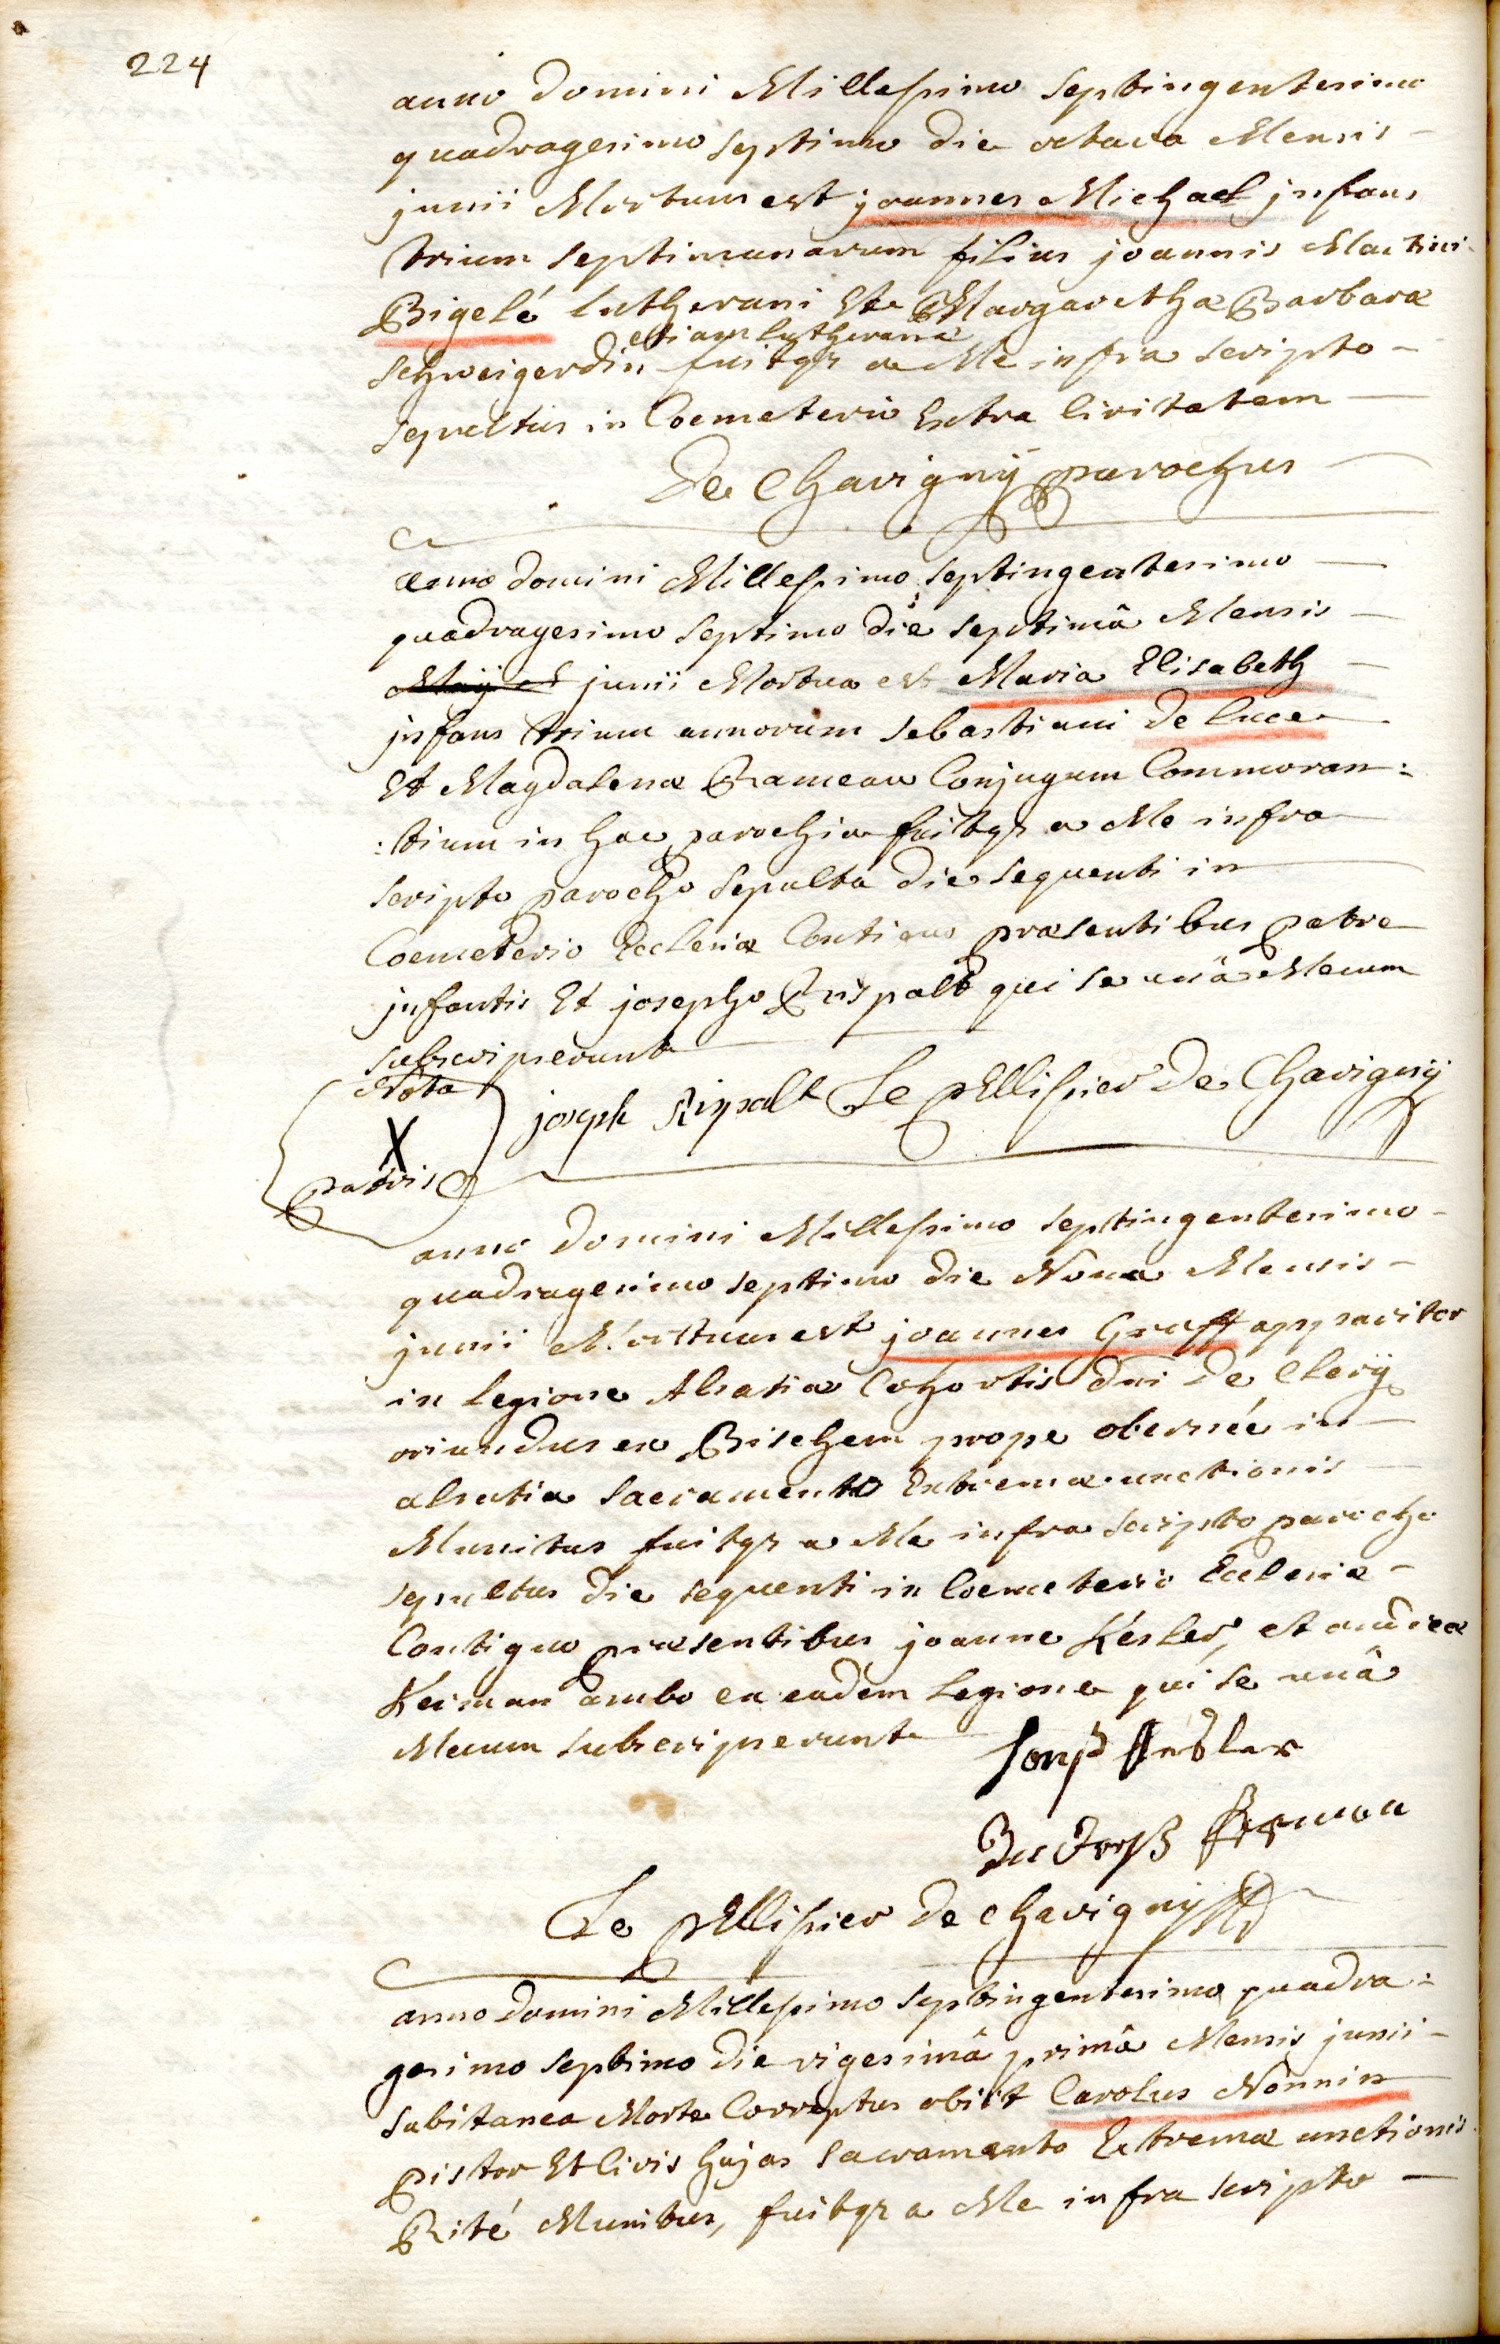 224
anno Domini Millesimo Septingentesimo
quadragesimo septimo die octava Mensis
junii Mortuus est joannes Michael jnfans
trium septimanarum filius joannis Martini
Bigelé lutherani Et Margarethæ Barbaræ
etiam lutheranæ
schweigerdin fuitqз a Me infra scripto
sepultus in Coemeterio Extra Civitatem
De Chavignÿ parochus
anno domini Millesimo septingentesimo
quadragesimo septimo die septimâ Mensis
Maÿ junii Mortua est Maria Elisabeth
jnfans trium annorum sebastiani De luce
Et Magdalenæ Rameau Conjugum Commoran:
:tium in hac parochia fuitqз a Me infra
scripto parocho sepulta die sequenti in
Coemeterio Ecclesiæ Contiguo præsentibus patre
jnfantis Et josepho Rispalt qui se unâ Mecum
subscripserunt
Nota
X
patris
joseph Rispalt Le pEllissier De Chavignÿ
anno Domini Millesimo septingentesimo
quadragesimo septimo die Nona Mensis
junii Mortuus est joannes Graff apparitor
in legione Alsatiæ Cohortis dni De Clerÿ
oriundus ex Bischem prope obernée in
alsatia sacramento Extremæ unctionis
Munitus fuitqз a Me infra scripto parocho
sepultus die sequenti in Coemeterio Ecclesiæ
Contiguo præsentibus joanne Késler, et andrea
Keiman ambo ex eadem legione qui se unâ
Mecum subscripserunt
Kesler
Le pEllissier De Chavignÿ
anno domini Millesimo septingentesimo quadra:
gesimo septimo die vigesimâ primâ Mensis junii
subitanea Morte Correptus obiit Carolus Nonnin
pistor Et Civis hujas sacramento Extremæ unctionis
Rité Munitus, fuitqз a Me infra scripto